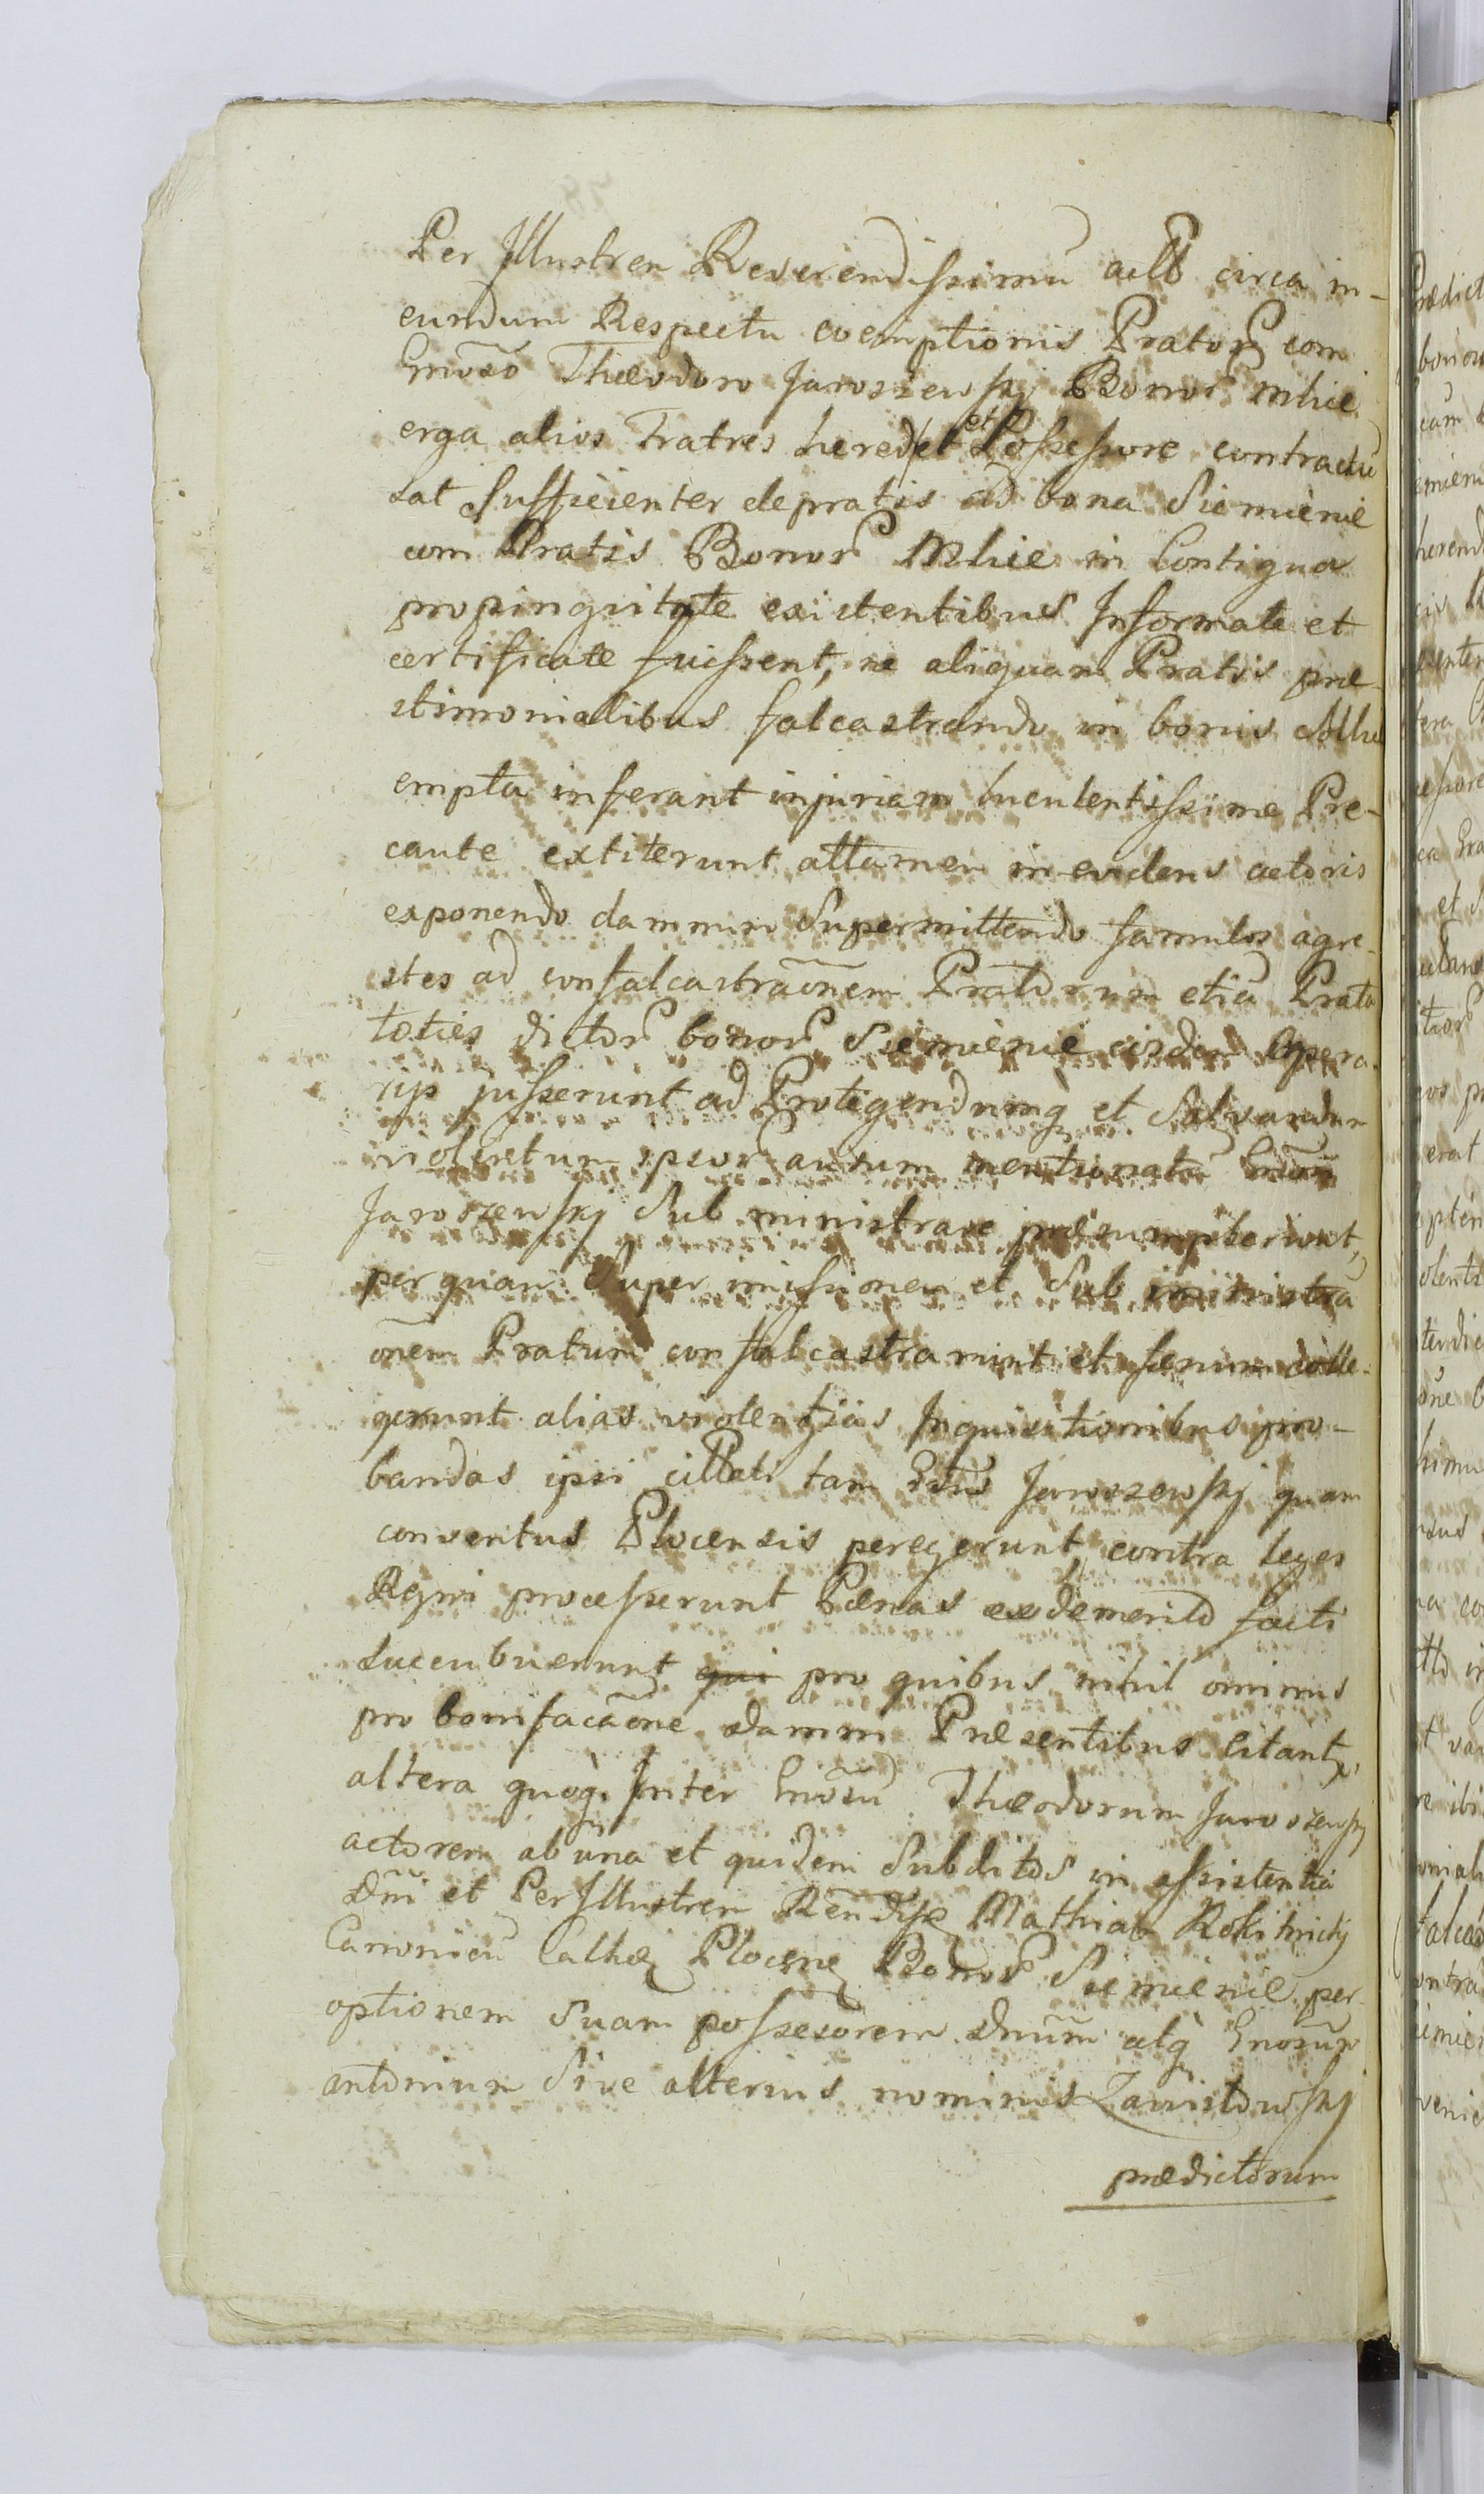 Per Illustren Reverendissimũ actt͂ circa in-
eundum Respectu coemptionis Prator͂ com
Gnoso͂ Theodoro Jaroszewskj Bonor͂ Mlice
erga alios Fratres hered/et et Possessore contractũ
sat Sufficienter de pratis ad bona Siemienie
cum Pratis Bonor͂ Mlice in Contigua
propinquitate existentibus Informate et
certificate fuissent, ne aliquam Pratis præ-
stimonialibus falcastrando in bonis Mlice
empta inferant injuriam luculentissime Pre-
caute extiterunt attamen in evidens actoris
exponendo damnum Supermittendo famulos agre-
stes ad confalcastrao͂nem Pratorum etiã Prata
toties dictor͂ bonor͂ Siemienie eisdem Opera-
rijs jusserunt ad Protegendumq et Salvandum
violentum ipsor͂ ausum mentionatũ
Jaroszewskj Sub ministrare præsumpserunt,
per quam Super missionem et Sub ministra
onem͂ Pratum confalcastrarunt et fœnum colle-
gerunt alias violentias Inquisitionibus pro-
bandas ipsi cittati tam Jaroszewskj quam
conventus Plocensis peregerunt, contra leges
Regni processerunt Pœnas ex demerito facti
Sucenbuerunt ~~qui~~ pro quibus nihil ominus
pro bonifacao͂ne damni Præsentibus citantr,
altera quoq. Inter Gnosũ Theodorum Jaroszewskj
actorem ab una et quidem Subditos in assistentia
Dn͂i et Per Illustren Ren͂diss Mathiab Rokitnickj
Canonicũ Cathez Plocenz Bonor͂ Siemienie per
optionem Suam possesorem Dnu͂m atq Gnosu͂m
antonium Sive alterius nominis Zawistowskj
prædictorum